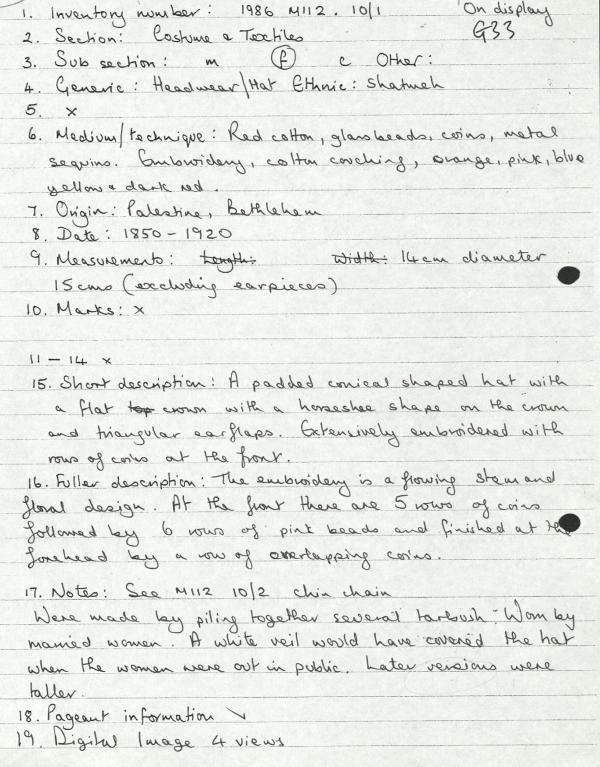 1. Inventory number: 1986 M112. 10/1 On display
G33
2. Section: Costume & Textiles
3. Sub section: m f c Other:
4. Generic: Headwear/Hat Ethnic: Shatweh
5. x
6. Medium/technique: Red cotton, glass beads, coins, metal
sequins. Embroidery, cotton couching, orange, pink, blue
yellow & dark red.
7. Origin: Palestine, Bethlehem
8. Date: 1850-1920
9. Measurements: Length: Width: 14cm diameter
15cms (excluding earpieces)
10. Marks: x
11 - 14 x
15. Short description: A padded conical shaped hat with
a flat top crown with a horseshoe shape on the crown
and triangular earflaps. Extensively embroidered with
rows of coins at the front.
16. Fuller description: The embroidery is a flowing stem and
floral design. At the front there are 5 rows of coins
followed by 6 rows of pink beads and finished at the
forehead by a row of overlapping coins.
17. Notes: See M112 10/2 chin chain
Were made by piling together several tarbush. Worn by
married women. A white veil would have covered the hat
when the women were out in public. Later versions were
taller.
18. Pageant information
19. Digital Image 4 views